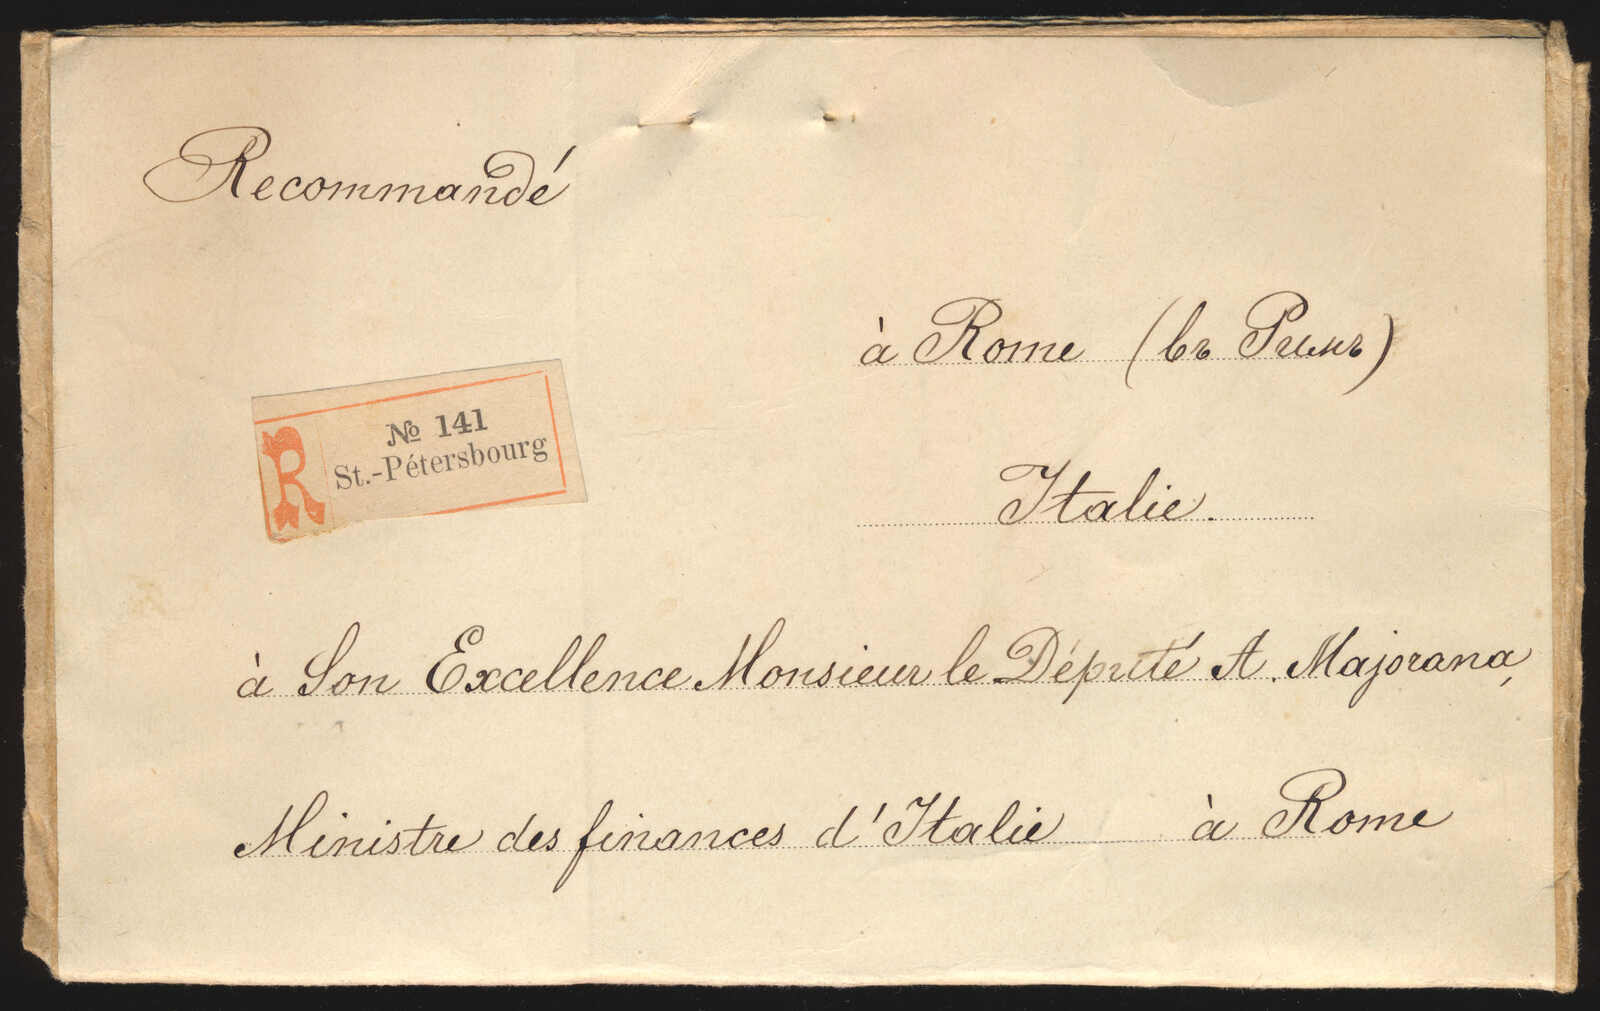 Recommandé
à Rome (въ Римъ)
R
№ 141
St.-Pétersbourg
Italie.
à Son Excellence Monsieur le Député A. Majorana,
Ministre des finances d'Italie à Rome